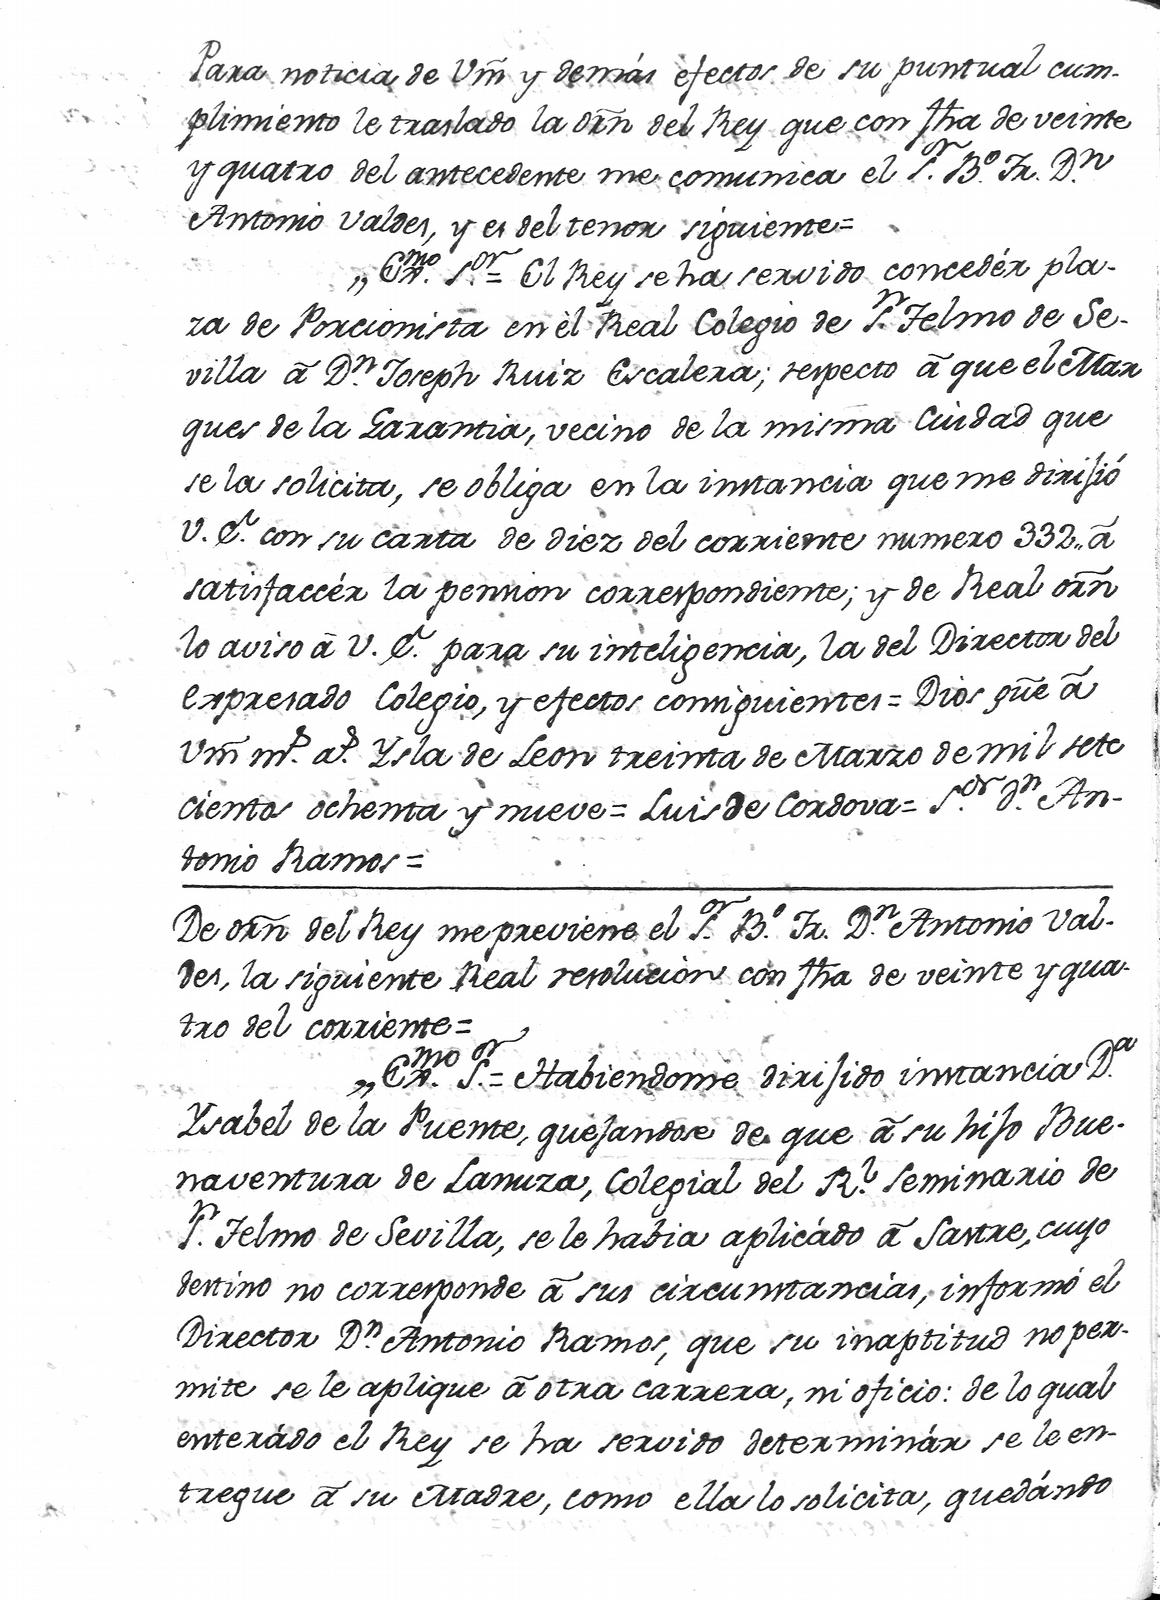 Para noticia de Vm̃ y demás efectos de su puntual cum-
plimiento le traslado la orn̄ del Rey que con fh̄a de veinte
y quatro del antecedente me comunica el S.or B.o Fr. D.n
Antonio Valdes, y es del tenor siguiente=
„Exmo. S.or= El Rey se ha servido concedér pla-
za de Porcionista en èl Real Colegio de S.n Telmo de Se-
villa ã D.n Joseph Ruiz Escalera; respecto ã que el Mar
ques de la Garantia, vecino de la misma Ciudad que
se la solicita, se obliga en la instancia que me dirijió
V. E. con su carta de diez del corriente numero 332„ ã
satisfaccér la pension correspondiente; y de Real orñ
lo aviso ã V. E. para su inteligencia, la del Director del
expresado Colegio, y efectos consiguientes= Dios gũe ã
Vm̃ m.s a.s Ysla de Leon treinta de Marzo de mil sete
cientos ochenta y nueve= Luis de Cordova= S.or D.n An-
tonio Ramos=
De orñ del Rey me previene el S.or B.o Fr. D.n Antonio Val-
des, la siguiente Real resolucion con fh̄a de veinte y qua-
tro del corriente=
„Exmo. S.or= Habiendome dirijido instancia D.a
Ysabel de la Puente, quejandose de que ã su hijo Bue-
naventura de Lanuza, Colegial del R.l Seminario de
S.n Telmo de Sevilla, se le habia aplicádo ã Sastre, cuyo
destino no corresponde ã sus circunstancias, informó el
Director D.n Antonio Ramos, que su inaptitud no per-
mite se le aplique ã otra carrera, ni oficio: de lo qual
enterádo el Rey se ha servido determinár se le en-
tregue ã su Madre, como ella lo solicita, quedándo